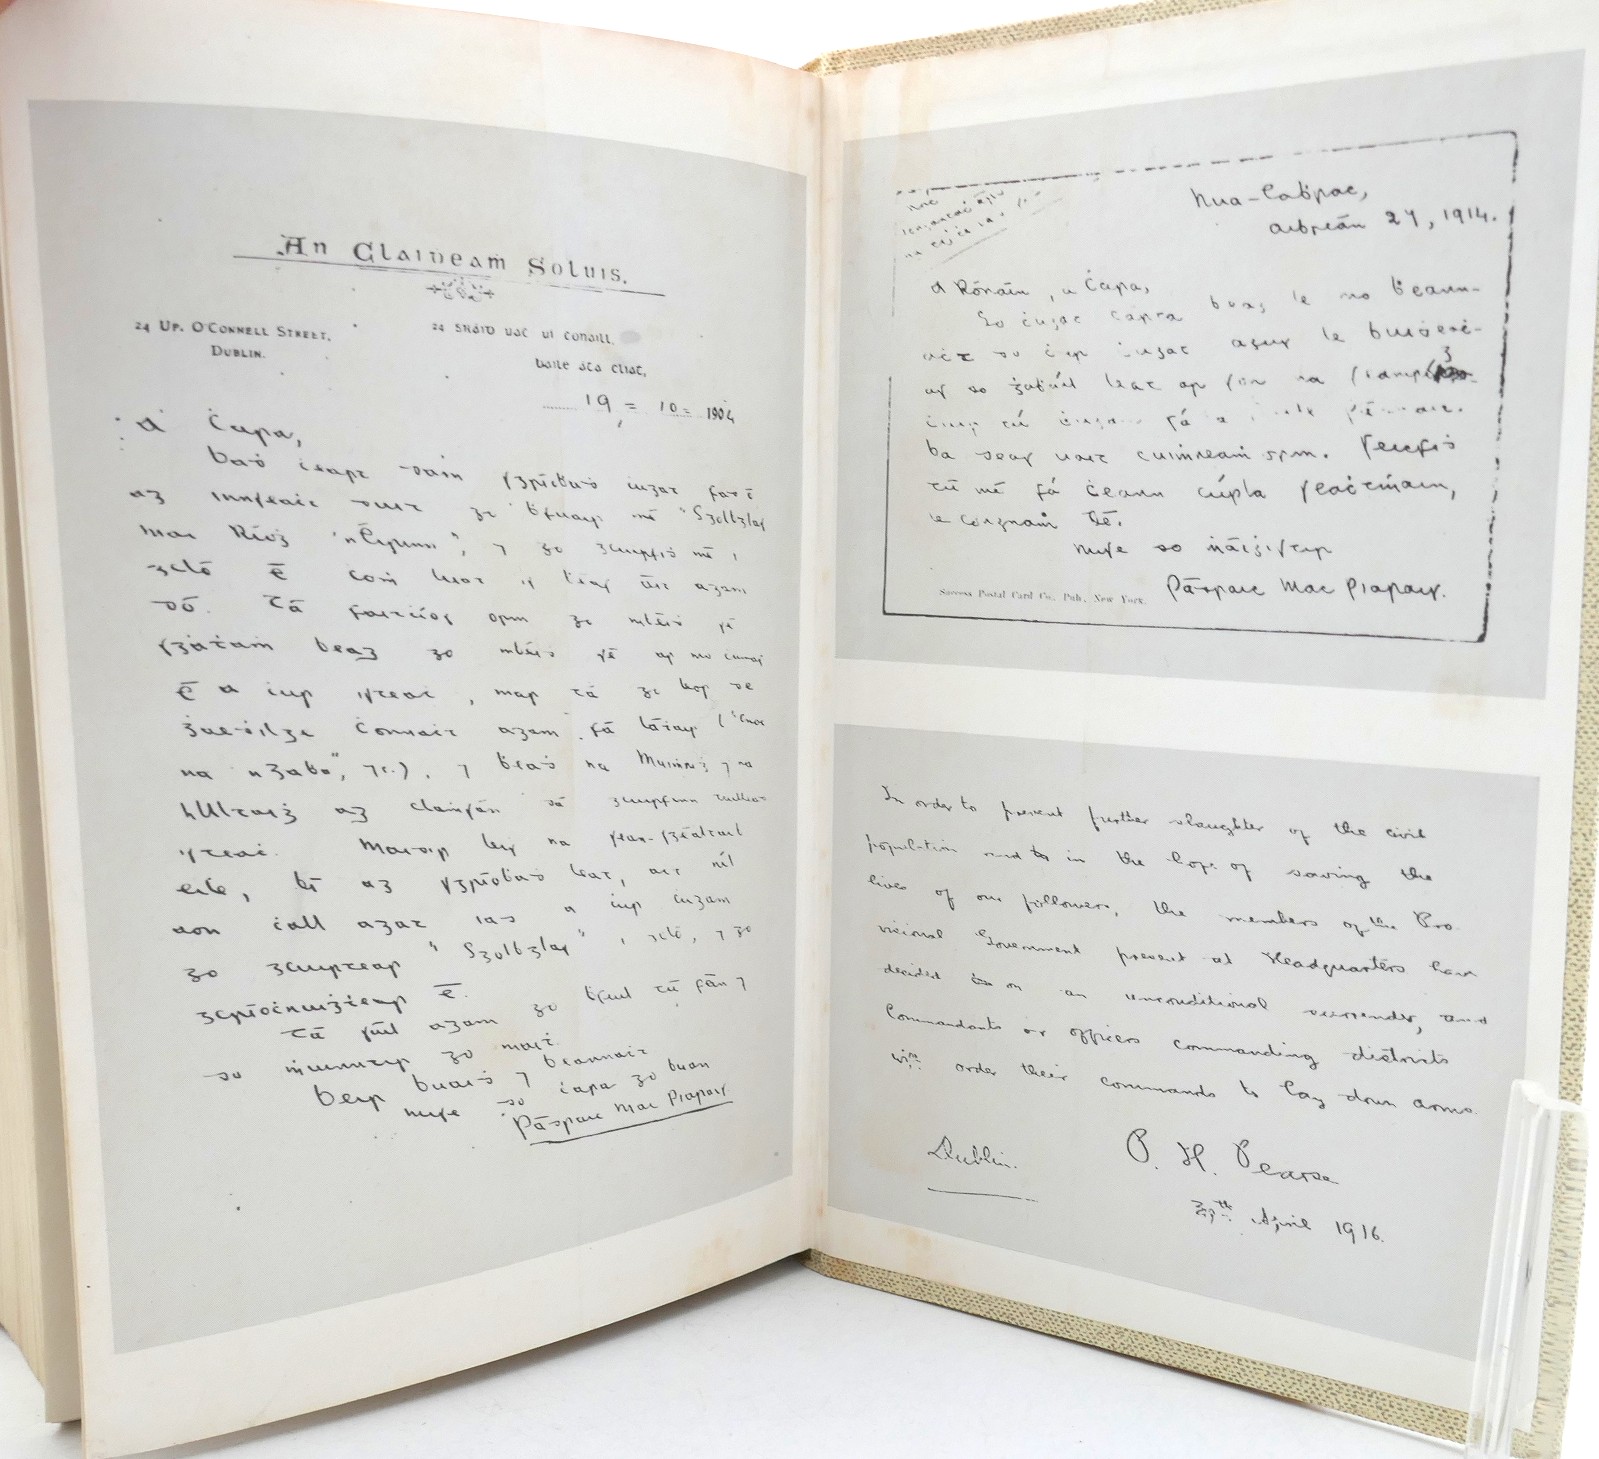 An Claiḋeaṁ Soluis.
24 Up. O'Connell Street,
Dublin.
24 Sráid Uaċ Uí Conaill,
Baile Áta Cliat,
19 = 10 = 1904
A Ċara,
Badh ċeart dam sgríobhadh ċugat fad ó
ag innseaċt duit go bhfuair mé "Sgolbglas
Mac Ríogh n-Éireann", ⁊ go gcuirfidh mé i
gcló é ċoṁ luat is bhéas áit agam
dó. Tá faitċíos orm go mbéiḋ sé
sgátaṁ beag go mbéiḋ sé ar mo ċumas
é a ċur isteaċ, mar tá go leor de
Ġaeḋilge Ċonnaċt agam fá látair ("Cnoc
na nGabha", ⁊c.), ⁊ béaḋ na Muiṁniġ ⁊ na
hUltaiġ ag clamhsán dá gcuirfinn tuilleaḋ
isteaċ. Maidir leis na sean-sgéaltaiḃ
eile, bí ag sgríobhaḋ leat, aċt níl
aon ċall agat iad a ċur ċugam
go gcuirtear "Sgolbglas" i gcló, ⁊ go
gcríoċnuiġtear é.
Tá súil agam go bhfuil tú slán ⁊
do ṁuinntir go maiṫ.
Beir buaiḋ ⁊ beannaċt
Mise do ċara go buan
Pádraic Mac Piarais
Nua-Eabhrac,
Aibreán 27, 1914.
A Rónáin, a Ċara,
beag le mo ḃeann-
aċt do ċur ċugat agus le buiḋeaċ-
as do ġabháil leat ar son na
ċuir tú ċugam fá
Ba deas uait cuiṁneaṁ orm. Feicfiḋ
tú mé fá ċeann cúpla seaċtṁain,
le congnaṁ Dé.
Mise do ṁáiġistir
Pádraic Mac Piarais.
Success Postal Card Co., Pub., New York.
In order to prevent further slaughter of the civil
population and in the hope of saving the
lives of our followers, the members of the Pro-
visional Government present at Headquarters have
decided on an unconditional surrender, and
Commandants or officers commanding districts
will order their commands to lay down arms.
P. H. Pearse
Dublin.
30th April 1916.